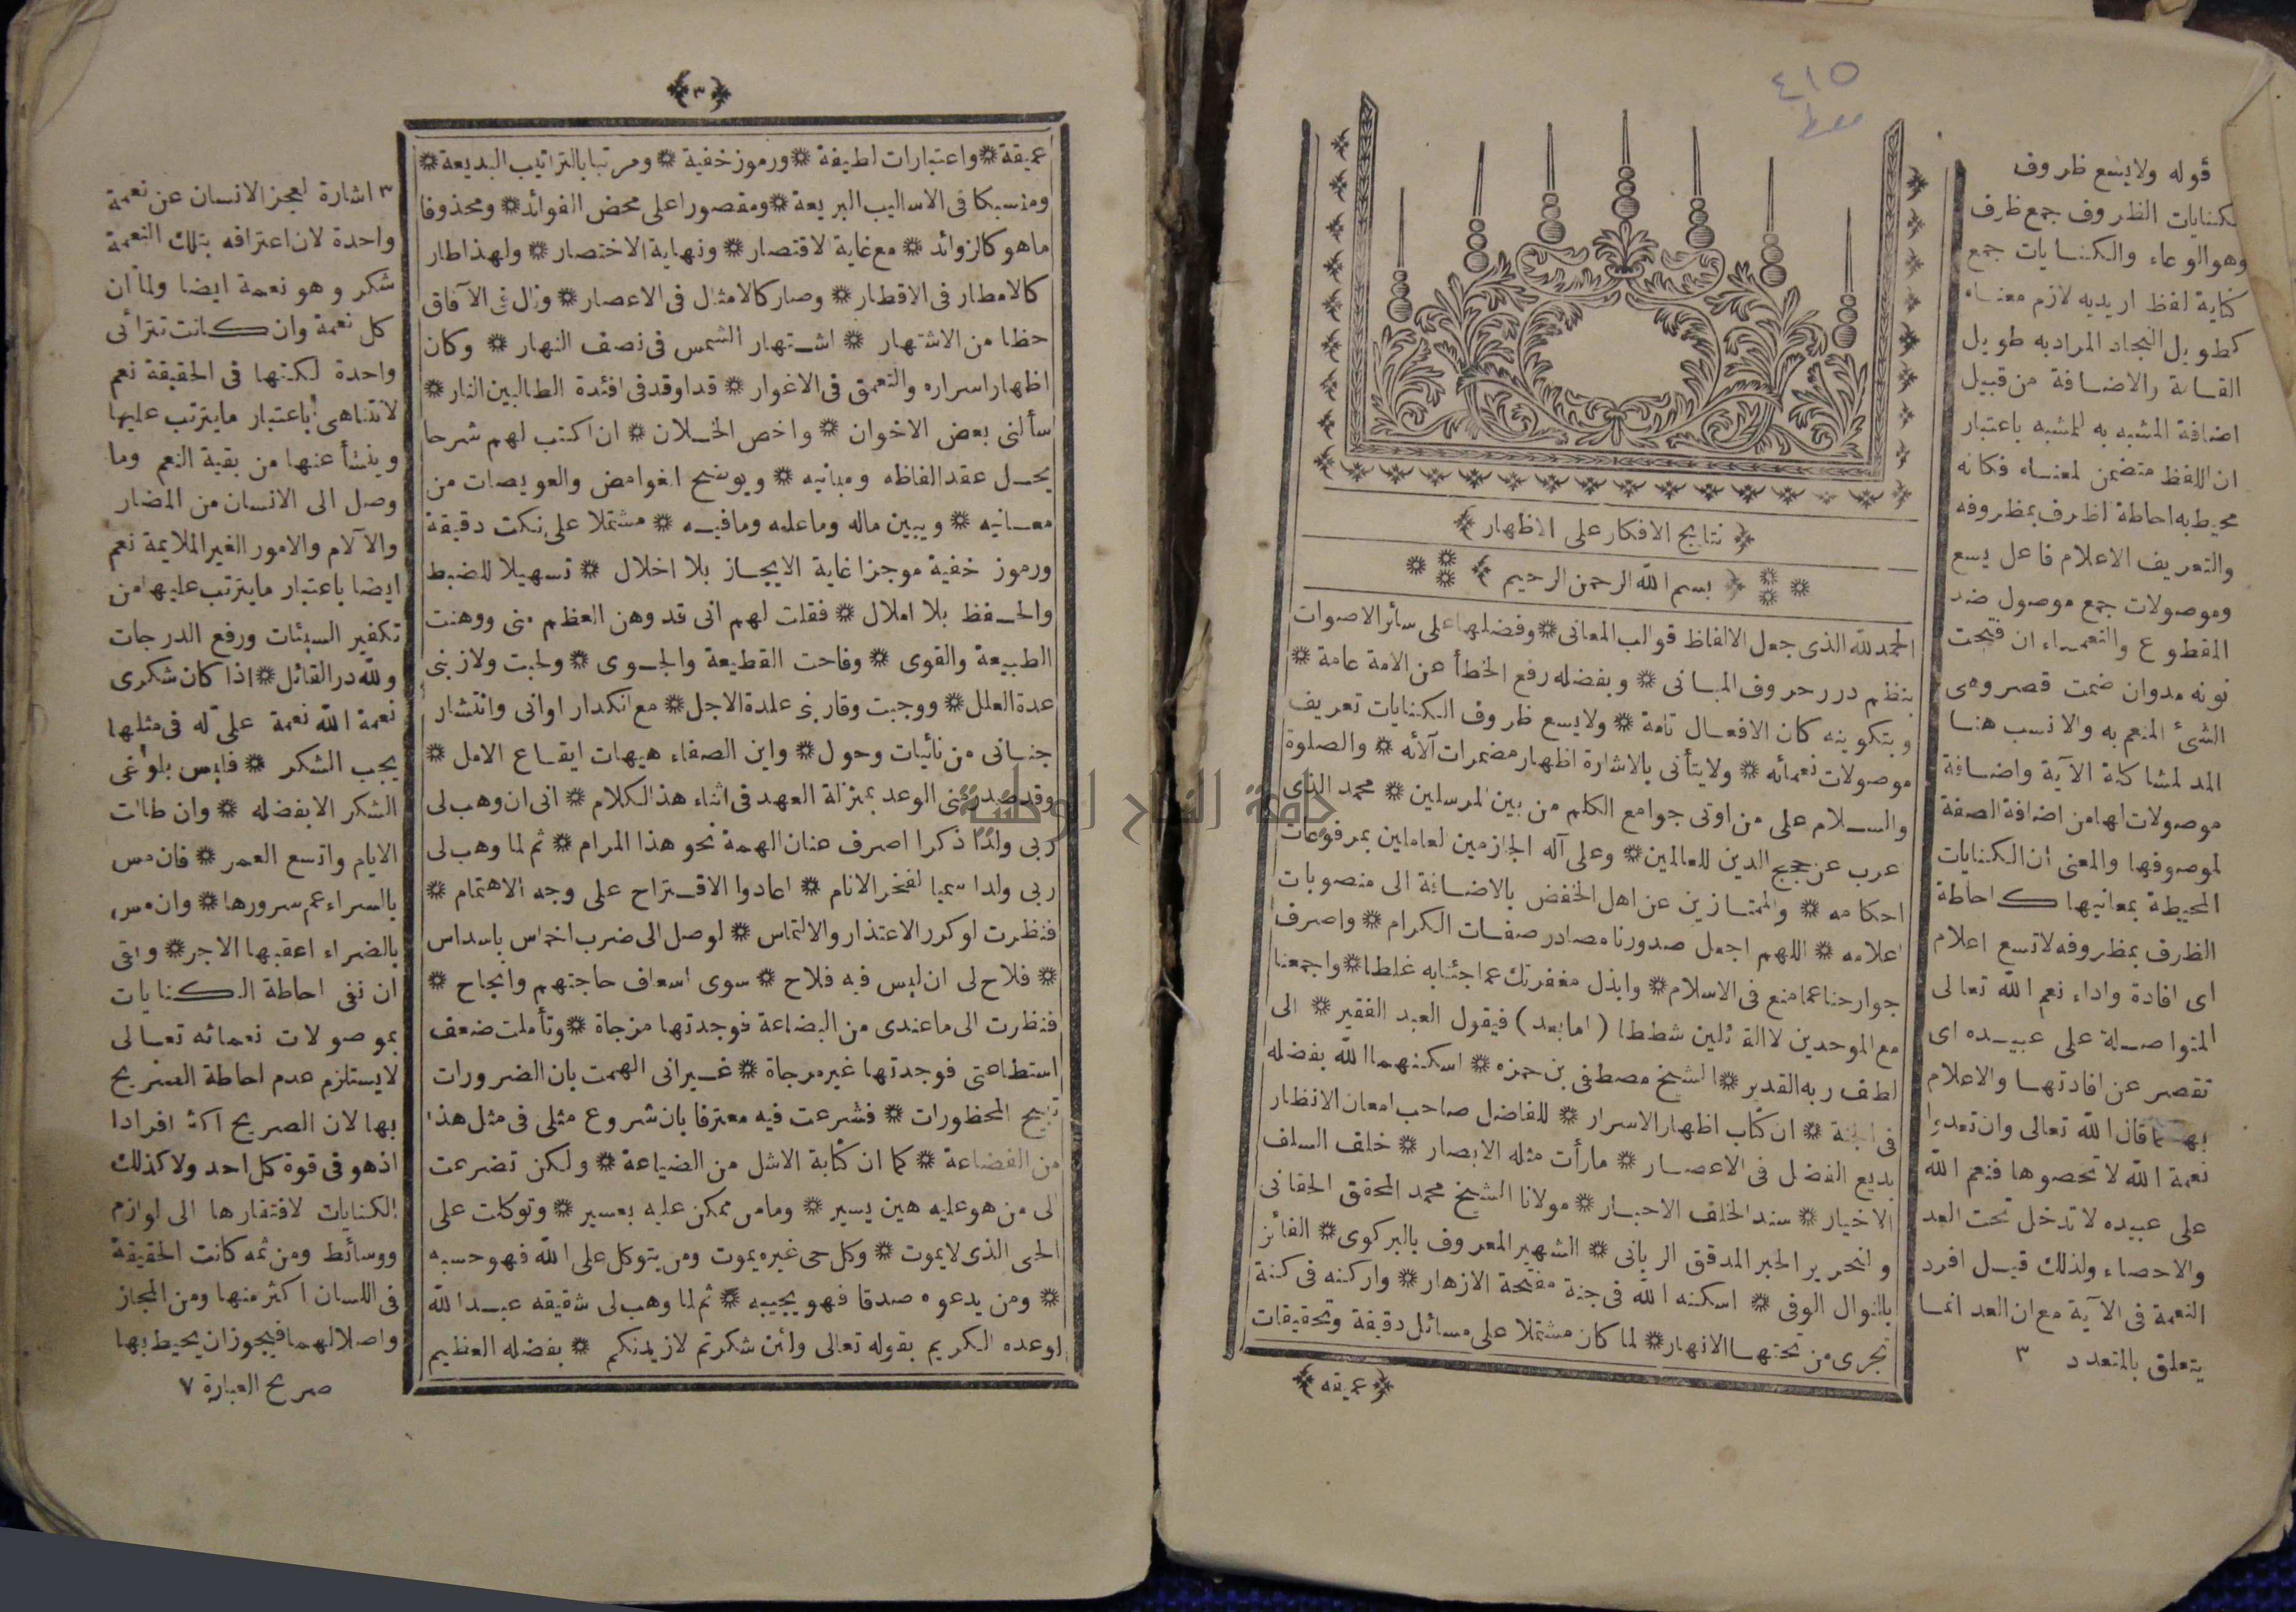 ٤١٥
قوله ولا يسع ظروف
الكنايات الظروف جمع ظرف
وهو الوعاء والكنايات جمع
كناية لفظ اريد به لازم معناه
كطويل النجاد المراد به طويل
القامة والاضافة من قبيل
اضافة المشبه به للمشبه باعتبار
ان اللفظ متضمن لمعناه فكانه
محيط به احاطة الظرف بمظروفه
والتعريف الاعلام فاعل يسع
وموصولات جمع موصول ضد
المقطوع والنعماء ان فتحت
نونه مد وان ضمت قصر وهى
الشئ المنعم به والانسب هنا
المد لمشاكلة الآية واضافة
موصولات لها من اضافة الصفة
لموصوفها والمعنى ان الكنايات
المحيطة بمعانيها كاحاطة
الظرف بمظروفه لا تسع اعلام
اى افادة واداء نعم الله تعالى
المتواصلة على عبيده اى
تقصر عن افادتها والاعلام
بها كما قال الله تعالى وان تعدوا
نعمة الله لا تحصوها فنعم الله
على عبيده لا تدخل تحت العد
والاحصاء ولذلك قيل افرد
النعمة فى الآية مع ان العد انما
يتعلق بالمتعدد ٣
﴿ نتايج الافكار على الاظهار ﴾
﴿ بسم الله الرحمن الرحيم ﴾
الحمد لله الذى جعل الالفاظ قوالب المعانى * وفضلها على سائر الاصوات
بنظم درر حروف المبانى * وبفضله رفع الخطأ عن الامة عامة *
وبتكوينه كان الافعال تامة * ولا يسع ظروف الكنايات تعريف
موصولات نعمائه * ولا يتأتى بالاشارة اظهار مضمرات آلائه * والصلوة
والسلام على من اوتى جوامع الكلم من بين المرسلين * محمد الذى
عرب عن حجج الدين للعالمين * وعلى آله الجازمين لعاملين بمرفوعات
احكامه * والممتازين عن اهل الخفض بالاضافة الى منصوبات
اعلامه * اللهم اجعل صدورنا مصادر صفات الكرام * واصرف
جوارحنا عما منع فى الاسلام * وابذل مغفرتك عما جئنا به غلطا * واجمعنا
مع الموحدين لا القائلين شططا ( اما بعد ) فيقول العبد الفقير * الى
لطف ربه القدير * الشيخ مصطفى بن حمزه * اسكنهما الله بفضله
فى الجنة * ان كتاب اظهار الاسرار * للفاضل صاحب امعان الانظار
بديع الفضل فى الاعصار * ما رأت مثله الابصار * خلف السلف
الاخيار * سند الخلف الاحبار * مولانا الشيخ محمد المحقق الحقانى
والنحرير الحبر المدقق الربانى * الشهير المعروف بالبركوى * الفائز
بالنوال الوفى * اسكنه الله فى جنة مفتحة الازهار * واركنه فى كنة
تجرى من تحتها الانهار * لما كان مشتملا على مسائل دقيقة وتحقيقات
﴿ عميقه ﴾
﴿ ٣ ﴾
عميقة * واعتبارات لطيفة * ورموز خفية * ومرتبا بالتراتيب البديعة *
ومنسبكا فى الاساليب البريعة * ومقصورا على محض الفوائد * ومحذوفا
ما هو كالزوائد * مع غاية لاقتصار * ونهاية الاختصار * ولهذا طار
كالامطار فى الاقطار * وصار كالامثال فى الاعصار * ونال فى الآفاق
حظا من الاشتهار * اشتهار الشمس فى نصف النهار * وكان
اظهار اسراره والتعمق فى الاغوار * قد اوقد فى افئدة الطالبين النار *
سألنى بعض الاخوان * واخص الخلان * ان اكتب لهم شرحا
يحل عقد الفاظه ومبانيه * ويوضح الغوامض والعويصات من
معانيه * ويبين ماله وما عليه وما فيه * مشتملا على نكت دقيقة
ورموز خفية موجزا غاية الايجاز بلا اخلال * تسهيلا للضبط
والحفظ بلا املال * فقلت لهم انى قد وهن العظم منى ووهنت
الطبيعة والقوى * وفاحت القطيعة والجوى * ولحبت ولازبنى
عدة العلل * ووجبت وقاربنى علدة الاجل * مع انكدار اوانى وانتشار
جنانى من نائبات وحول * واين الصفاء هيهات ايقاع الامل *
وقد صدر منى الوعد بمنزلة العهد فى اثناء هذا الكلام * انى ان وهب لى
ربى ولدا ذكرا اصرف عنان الهمة نحو هذا المرام * ثم لما وهب لى
ربى ولدا سميا لفخر الانام * اعادوا الاقتراح على وجه الاهتمام *
فنظرت لو كرر الاعتذار والالتماس * لوصل الى ضرب اخماس باسداس
* فلاح لى ان ليس فيه فلاح * سوى اسعاف حاجتهم وانجاح *
فنظرت الى ما عندى من البضاعة فوجدتها مزجاة * وتأملت ضعف
استطاعتى فوجدتها غير مرجاة * غير انى الهمت بان الضرورات
تبيح المحظورات * فشرعت فيه معترفا بان شروع مثلى فى مثل هذا
من الفضاعة * كما ان كتابة الاشل من الضياعة * ولكن تضرعت
الى من هو عليه هين يسير * وما من ممكن عليه بعسير * وتوكلت على
الحى الذى لا يموت * وكل حى غيره يموت ومن يتوكل على الله فهو حسبه
* ومن يدعوه صدقا فهو يجيبه * ثم لما وهب لى شقيقه عبد الله
لوعده الكريم بقوله تعالى ولئن شكرتم لازيدنكم * بفضله العظيم
٣ اشارة لعجز الانسان عن نعمة
واحدة لان اعترافه بتلك النعمة
شكر وهو نعمة ايضا ولما ان
كل نعمة وان كانت تترائى
واحدة لكنها فى الحقيقة نعم
لا تتناهى باعتبار ما يترتب عليها
وينشأ عنها من بقية النعم وما
وصل الى الانسان من المضار
والآلام والامور الغير الملايمة نعم
ايضا باعتبار ما يترتب عليها من
تكفير السيئات ورفع الدرجات
ولله در القائل * اذا كان شكرى
نعمة الله نعمة على له فى مثلها
يجب الشكر * فليس بلوغى
الشكر الا بفضله * وان طالت
الايام واتسع العمر * فان مس
بالسراء عم سرورها * وان مس
بالضراء اعقبها الاجر * وافى
ان نفى احاطة الكنايات
بموصولات نعمائه تعالى
لا يستلزم عدم احاطة الصريح
بها لان الصريح اكثر افرادا
اذ هو فى قوة كل احد ولا كذلك
الكنايات لافتقارها الى لوازم
ووسائط ومن ثمه كانت الحقيقة
فى اللسان اكثر منها ومن المجاز
واصلا لهما فيجوز ان يحيط بها
صريح العبارة ٧
جامعة النجاح الوطنية